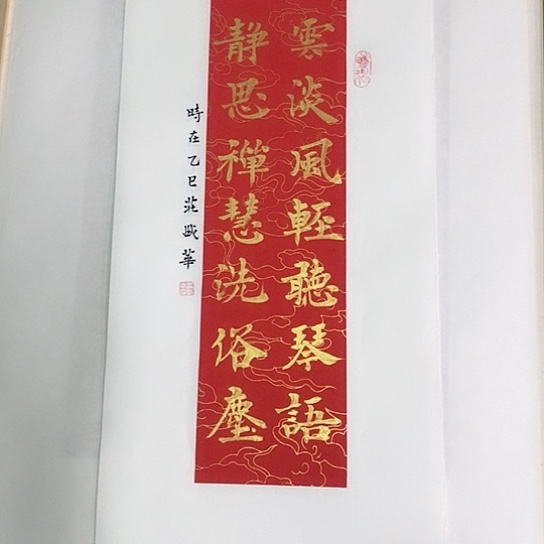 雲淡風輕聽琴語
静思禪慧洗俗塵
時在乙巳莊盛華